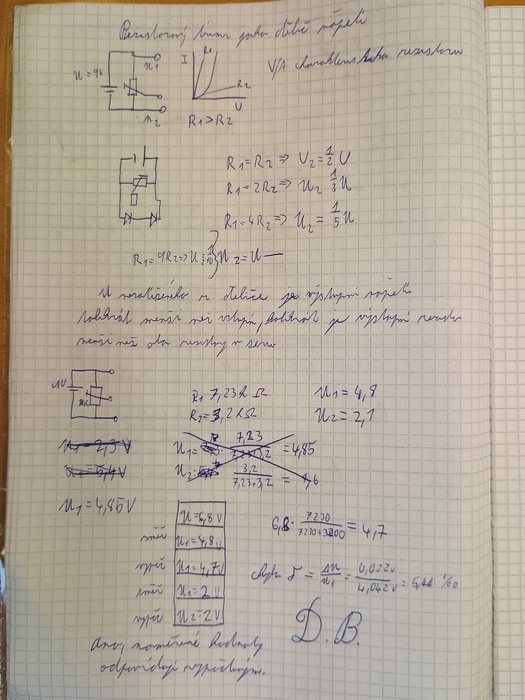 Rezistorový jako dělič napětí
U = 9V
U1
U2
I
R1
R2
U
R1 > R2
V/A charakteristika rezistoru
R1 = R2 => U2 = 1/2 U
R1 = 2R2 => U2 1/3 U
R1 = 4R2 => U2 = 1/5 U
R1 = 9R2 => U2 = U
U nezatíženého děliče je výstupní napětí
tolikrát menší než vstupní, kolikrát je výstupní
menší než oba rezistory v serii
R1 7,23 k Ω
R2 = 3,2 k Ω
U1 = 4,8
U2 = 2,1
U1 = 2,3 V
U1 = 7,23 / 7,23+3,2 = 4,85
U2 = 3,2 / 7,23+3,2 =
U1 = 4,85 V
U = 6,8 V
změř U1 = 4,8 V
vypoč U1 = 4,7 V
změř U2 = 2 V
vypoč U2 = 2 V
6,8 · 7230 / 7230+3200 = 4,7
chyba δ = ΔU / U1 = 0,022V / 4,042V =
D. B.
Ano, naměřené hodnoty
odpovídají vypočteným.